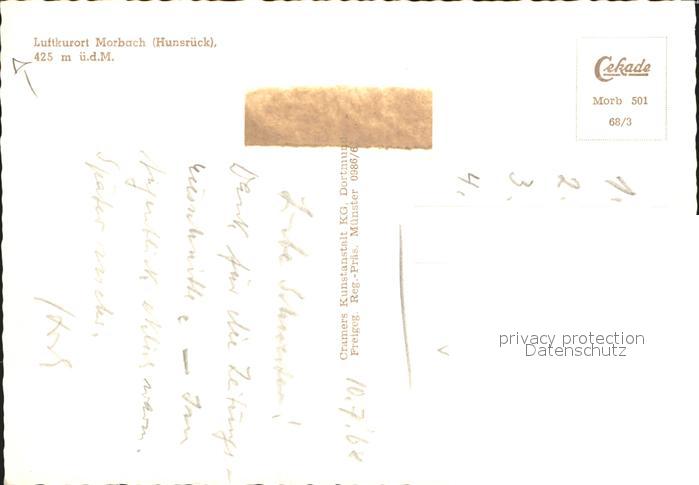 Luftkurort Morbach (Hunsrück),
425 m ü.d.M.
Cekade
Morb 501
68/3
Cramers Kunstanstalt KG, Dortmund
Freigeg. Reg.-Präs. Münster 0986/6
1.
2.
3.
4.
10.7.68
Liebe Schwester!
Dank für die Zeitungs-
ausschnitte — Im
Augenblick warm.
Später mehr.
privacy protection
Datenschutz